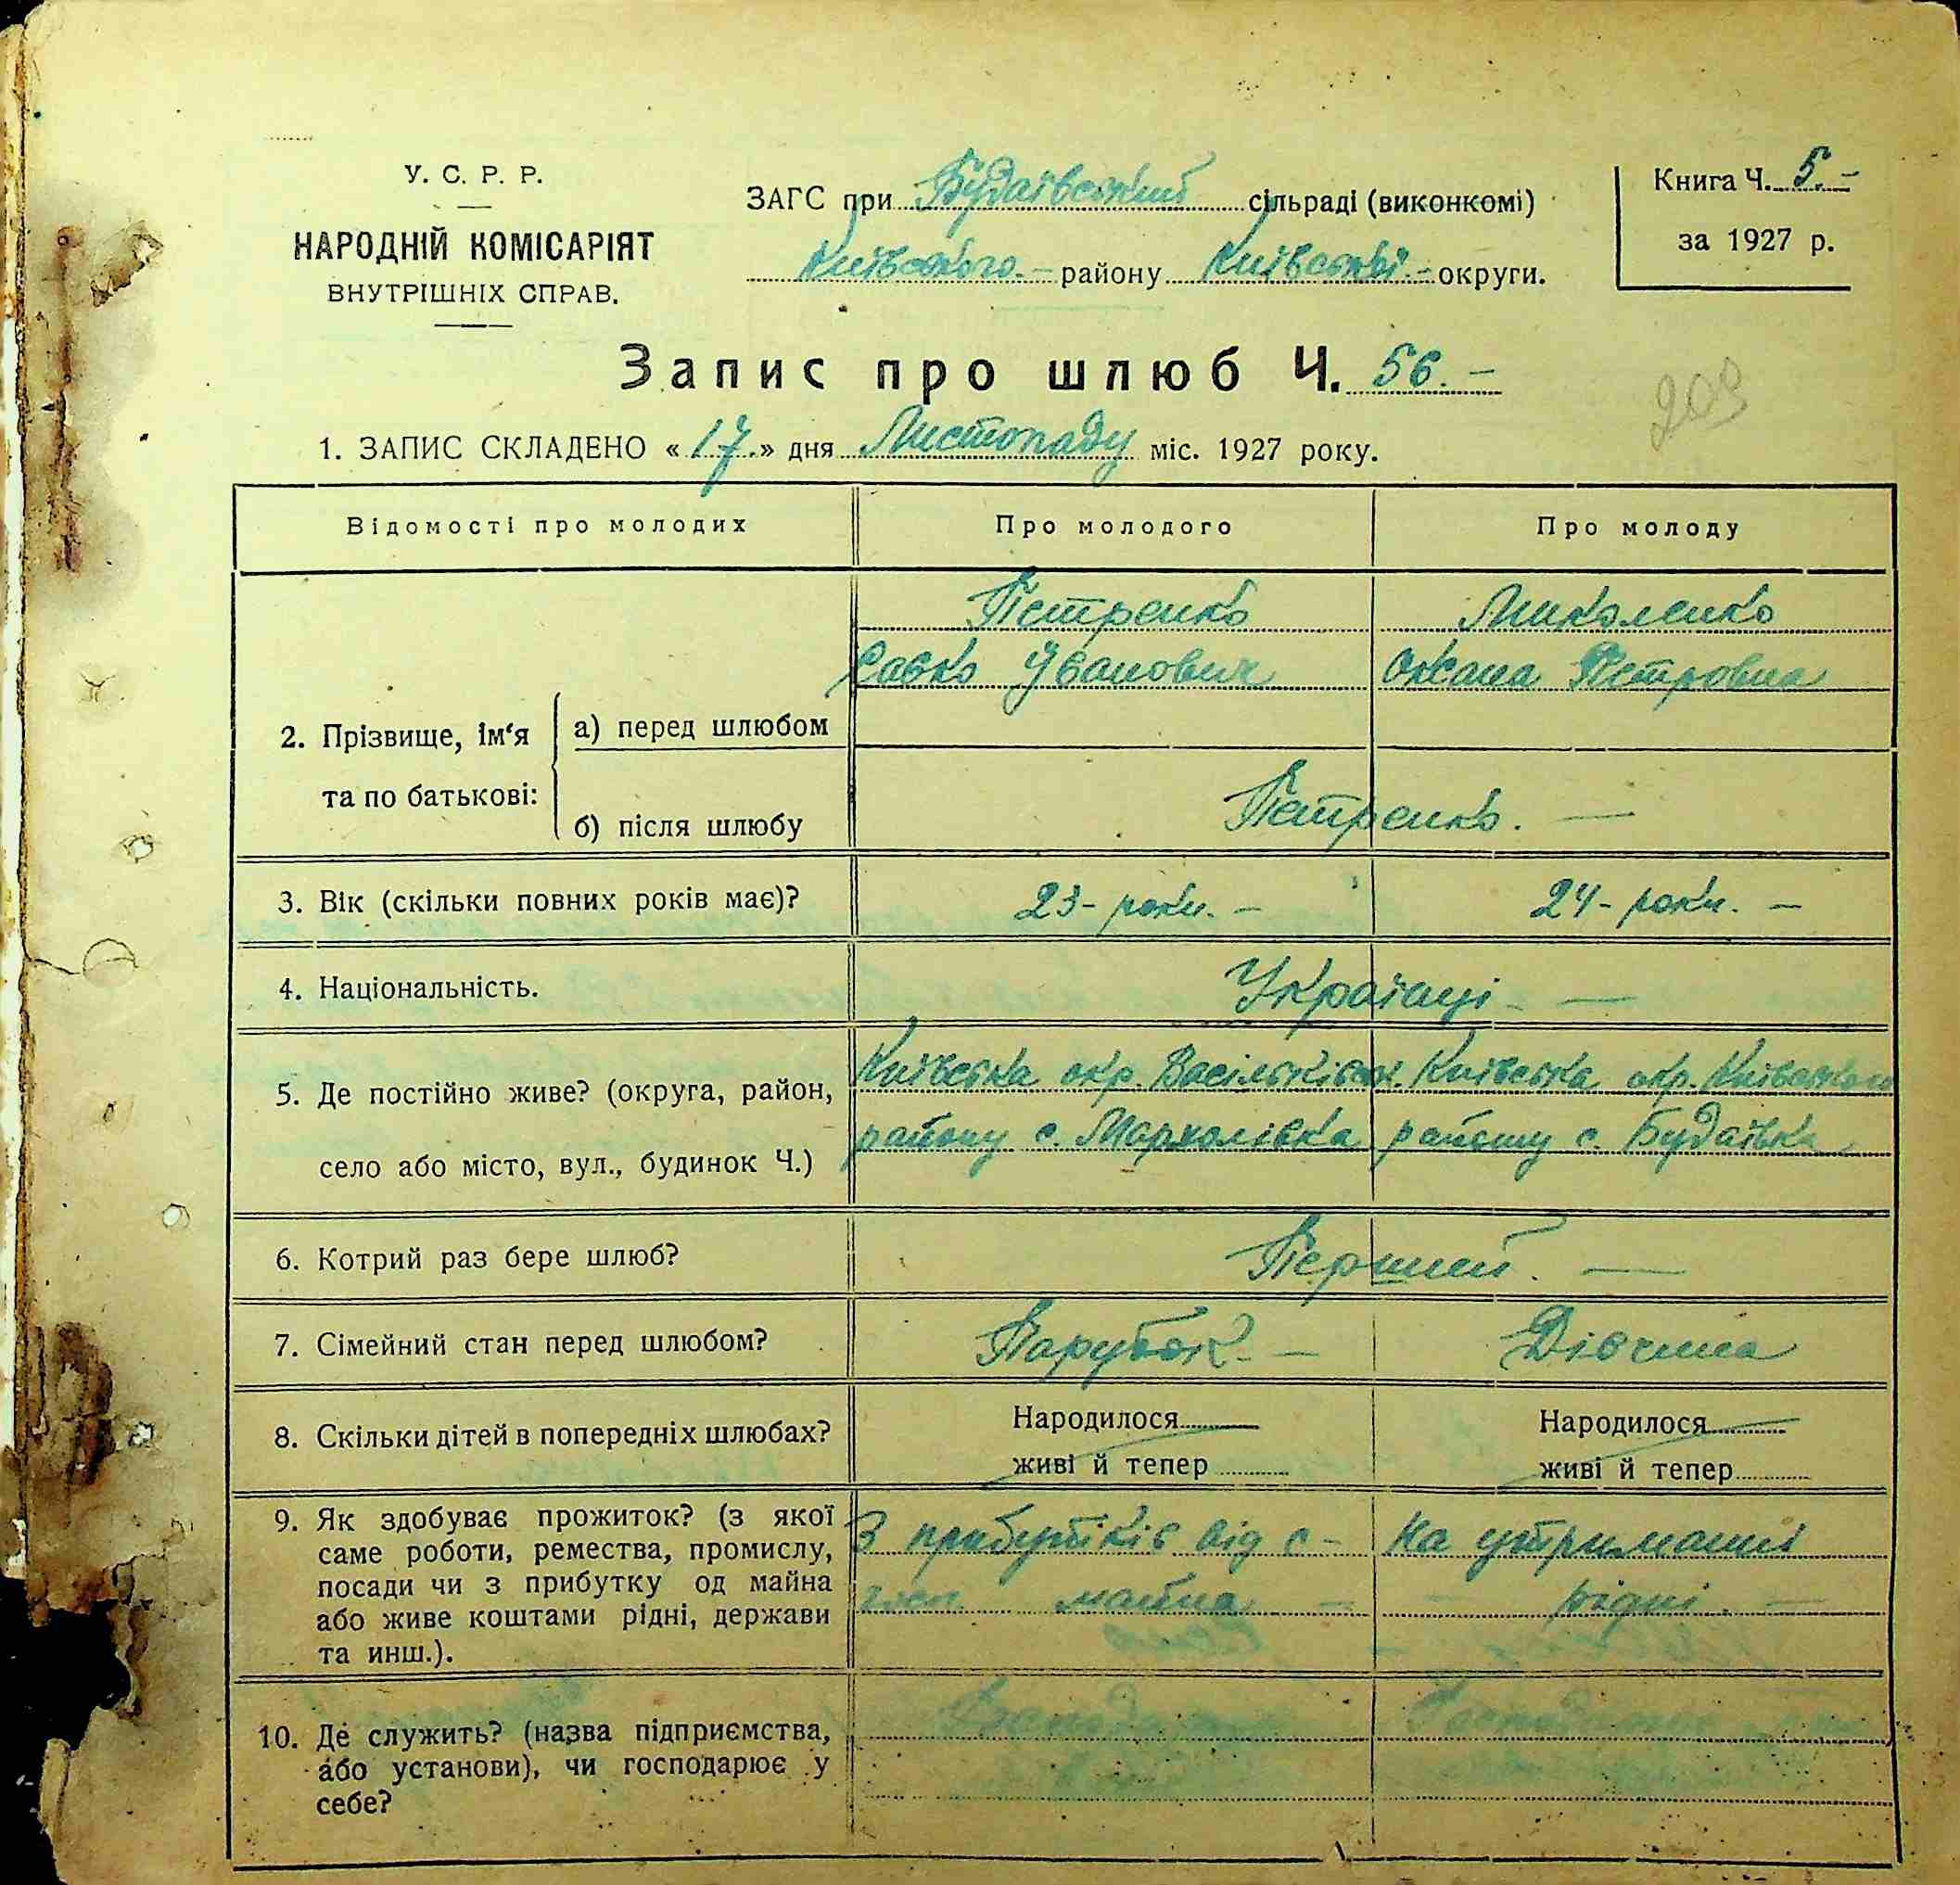 У. С. Р. Р.
НАРОДНІЙ КОМІСАРІЯТ
ВНУТРІШНІХ СПРАВ.
ЗАГС при Будаївський сільраді (виконкомі)
Київського район‌у Київської округи.
Книга Ч. 5. -
за 1927 р.
Запис про шлюб Ч. 56. -
209
1. ЗАПИС СКЛАДЕНО « 17 » дня Листопаду міс. 1927 року.
Відомості про молодих Про молодого Про молоду
Петренко Миколенко
Савко Іванович Оксана Петровна
2. Прізвище, ім‘я та по батькові:
а) перед шлюбом
б) після шлюбу Петренко. —
3. Вік (скільки повних років має)? 23 - роки. - 24 - роки. -
4. Національність. Українці - —
5. Де постійно живе? (округа, район, Київська окр. Васільківськ. Київська окр. Київського
село або місто, вул., будинок Ч.) району с. Мархалівка району с. Будаївка
6. Котрий раз бере шлюб? Перший. —
7. Сімейний стан перед шлюбом? Парубок - — Дівчина
8. Скільки дітей в попередніх шлюбах? Народилося Народилося
живі й тепер живі й тепер
9. Як здобуває прожиток? (з якої З прибутків від с - На утриманні
саме роботи, ремества, промислу,
посади чи з прибутку од майна госп. майна - рідні. -
або живе коштами рідні, держави
та инш.).
10. Де служить? (назва підприємства,
або установи), чи господарює у
себе?